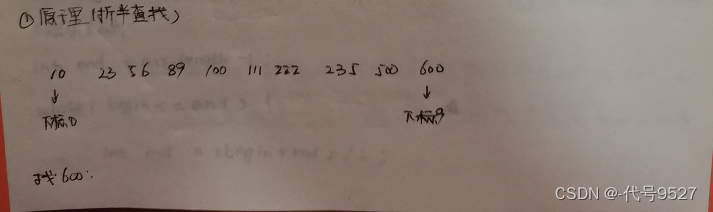 ① 原理(折半查找)
10 23 56 89 100 111 222 235 500 600
↓ ↓
下标0 下标9
找600:
CSDN @-代号9527